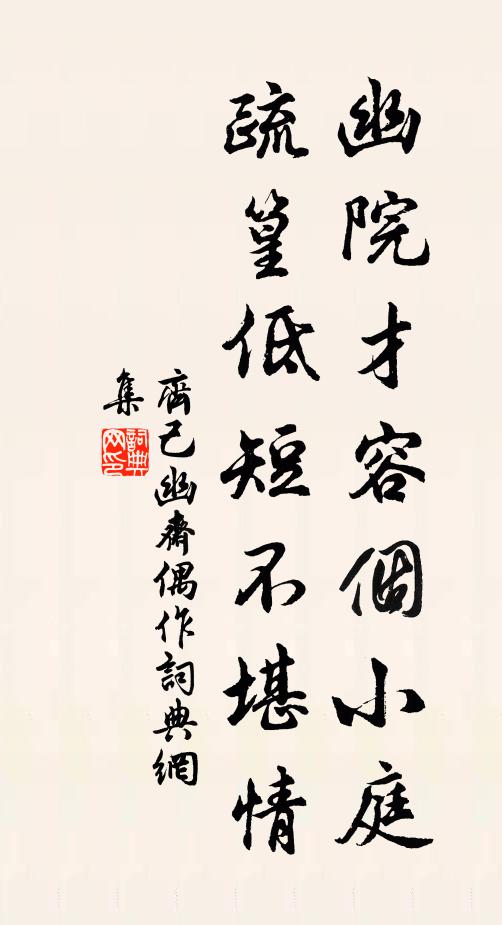 幽院才容個小庭
疏篁低短不堪情
齊己幽齋偶作詞典網
集
詞典網印